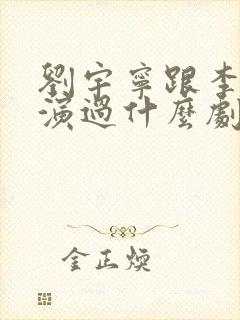 劉宇寧跟李
演過什麼劇
金正煥